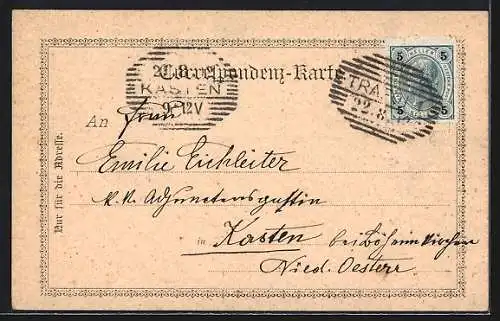 Correspondenz-Karte
KASTEN
9-12V
TRA
22.8
5 HELLER 5
5 5
An Frau
Emilie Eichleiter
k.k. Adjunctensgattin
in Kasten bei Böheimkirchen
Nied. Oesterr
Nur für die Adresse.